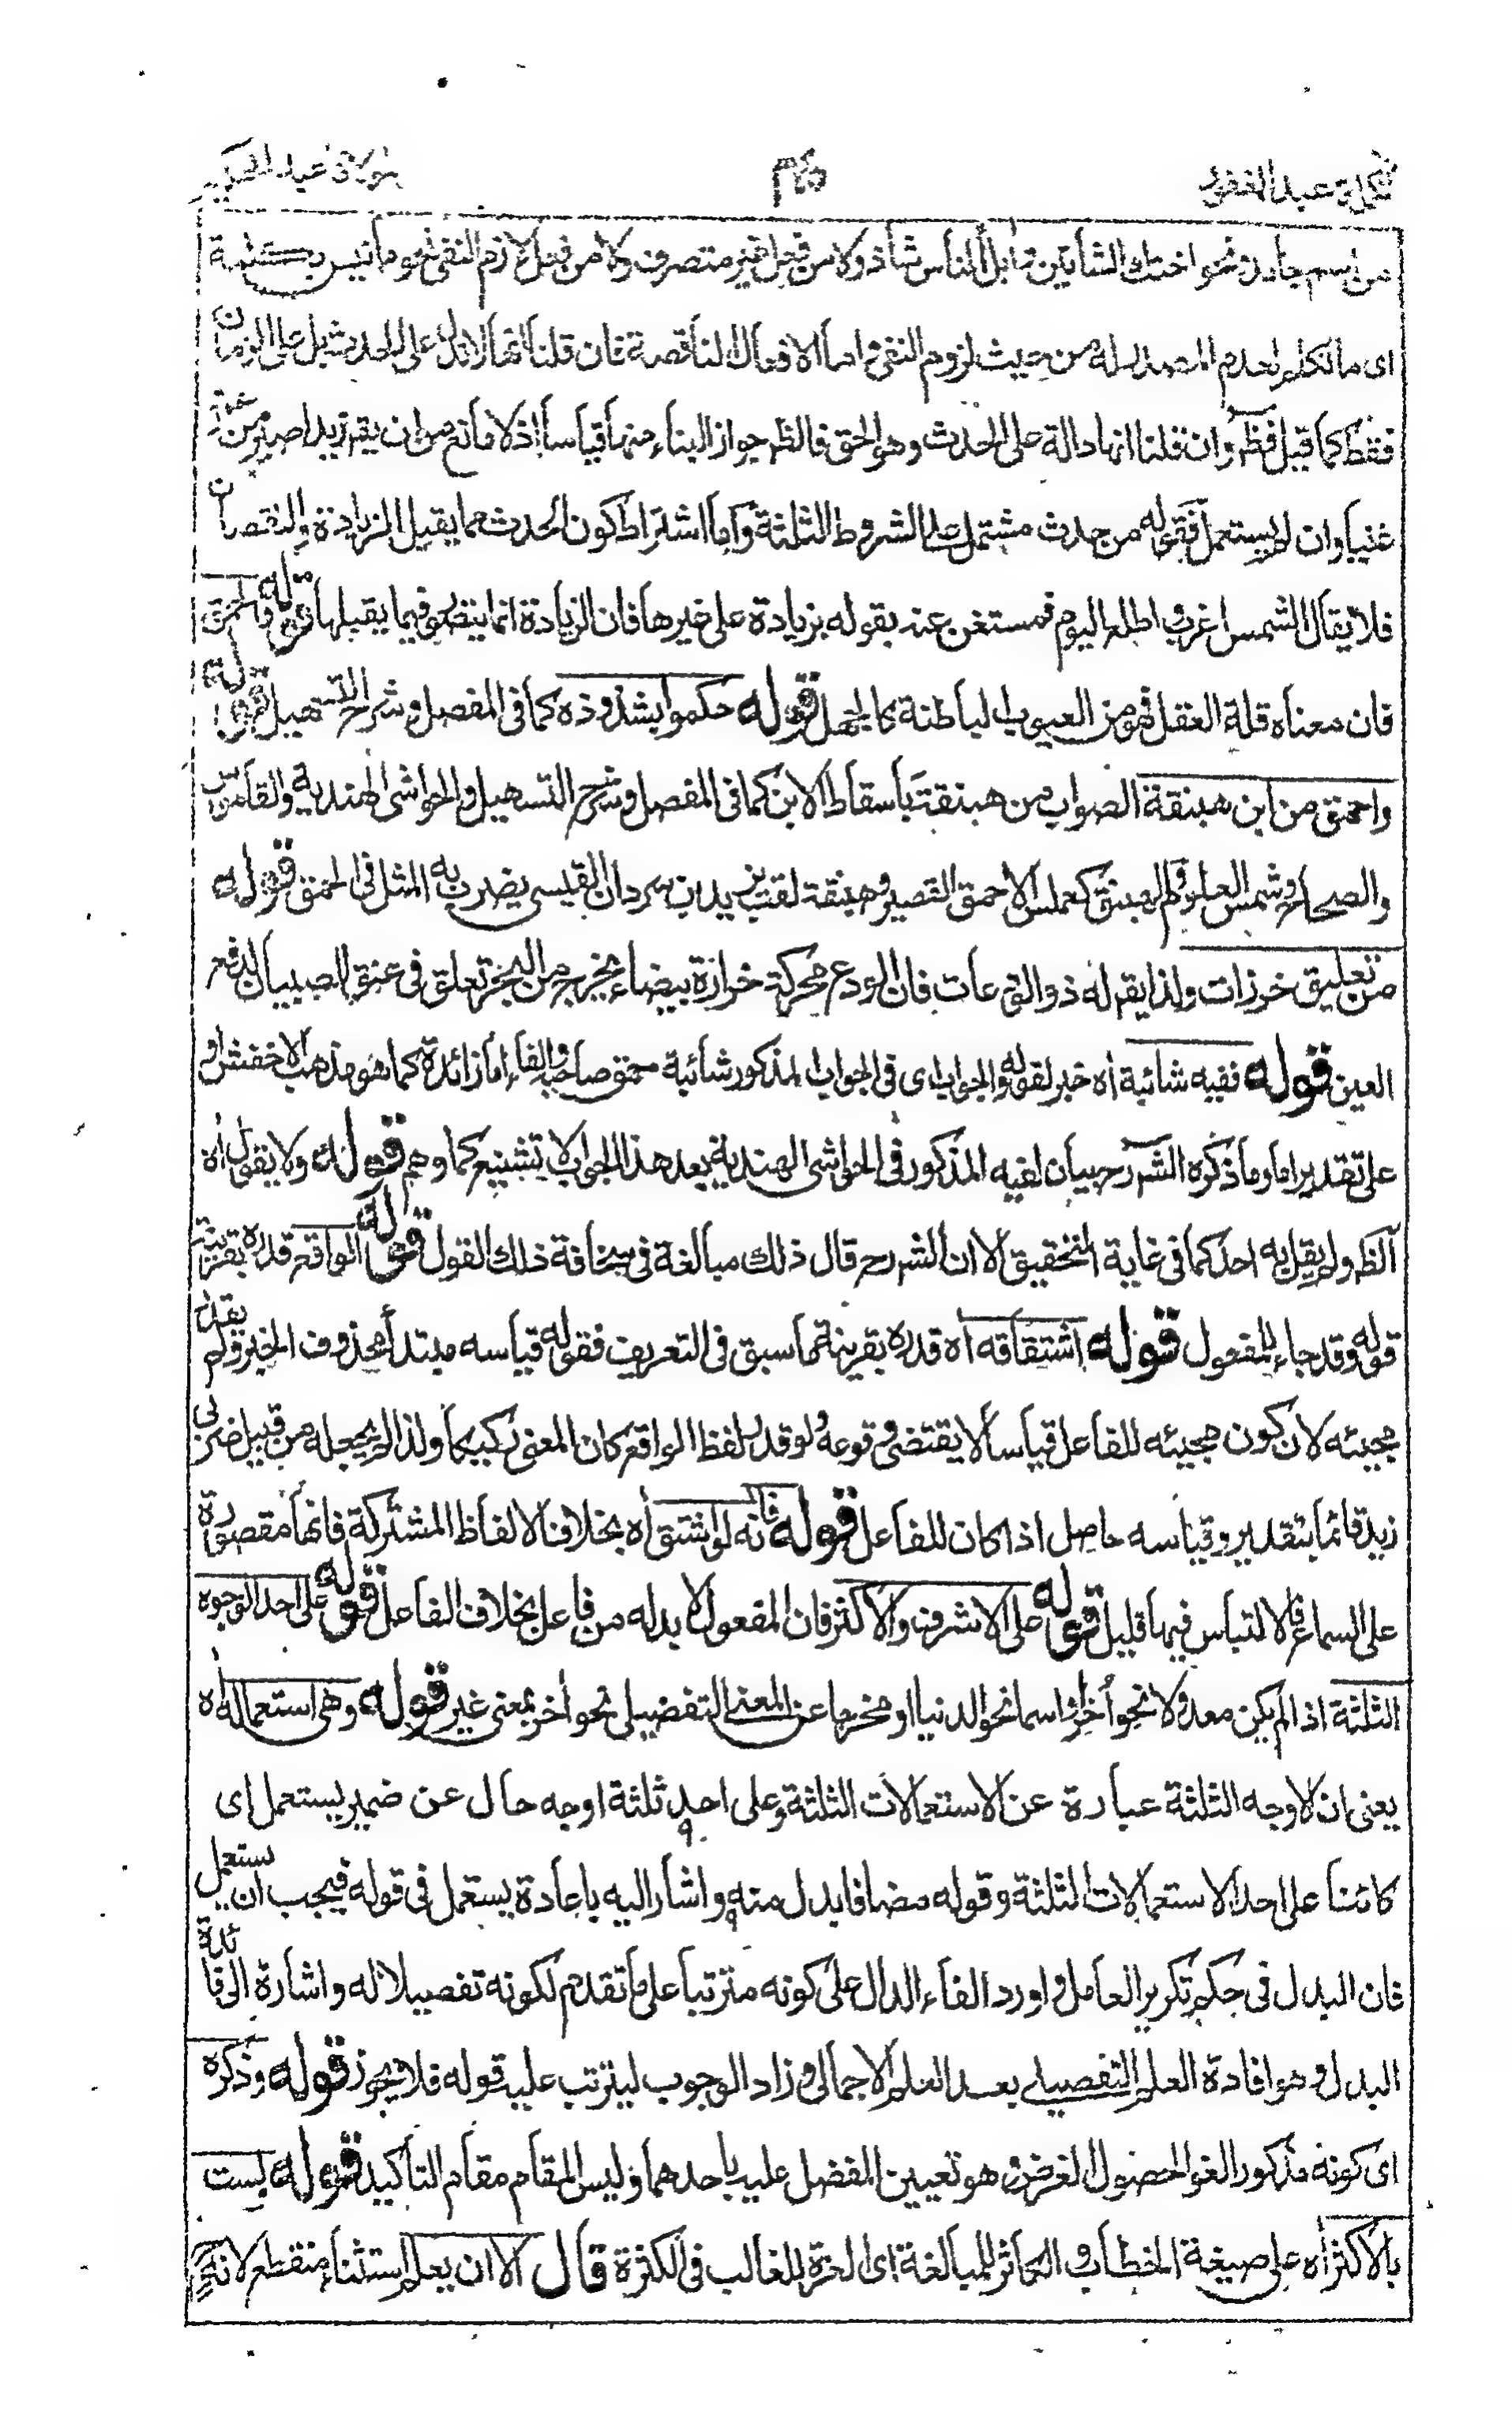 تكملة عبد الغفور
مولانا عبد الحكيم
من اسم جامد نحو احنك الشاتين ابل الناس شاذ ولا من فعل غير متصرف ولا من فعل لازم النفي نحو ما نبس بكلمة
اى ما تكلم لعدم من حيث لزوم النفى اما الافعال الناقصة فان قلنا انها لا تدل على الحدث بل على الزمان
فقط كما قيل فظ وان قلنا انها دالة على الحدث وهو الحق فالظ جواز البناء منها قياسا اذ لا مانع من ان يقم زيد اصير من عمرو
غنيا وان لم يستعمل فقوله من حدث مشتمل على الشروط الثلثة واما اشتراط كون الحدث مما يقبل الزيادة والنقصان
فلا يقال الشمس اغرب او اطلع اليوم فمستغن عنه بقوله بزيادة على غيرها فان الزيادة انما يتصور فيما يقبلها قوله فالحمق
فان معناه قلة العقل فهو من العيوب الباطنة كالجهل قوله حكموا بشذوذه كما فى المفصل وشرح التسهيل قوله
واحمق من ابن هبنقة الصواب من هبنقة باسقاط الابن كما فى المفصل وشرح التسهيل والحواشى الهندية والقاموس
والصحاح وشمس العلوم والهبنق كعملس الاحمق القصير وهبنقة لقب يزيد بن ثروان القيسى يضرب به المثل فى الحمق قوله
من تعليق خرزات ولذا يقم له ذو الودعات فان الودع محركة خرازة بيضاء يخرج من البحر تعلق فى عنق الصبيان لدفع
العين قوله ففيه شائبة اه خبر لقوله والجواب اى فى الجواب المذكور شائبة حمق صاحبه والفاء اما زائدة كما هو مذهب الاخفش او
على تقدير اما وما ذكره الشرح بيان لفيه المذكور فى الحواشى الهندية بعد هذا الجواب لا تشنيع كما وهم قوله ولا يقول اه
الظ ولم يقل به احد كما فى غاية التحقيق الا ان الشرح قال ذلك مبالغة فى سخافة ذلك القول قوله الواقع قدره بقرينة
قوله وقد جاء للمفعول قوله اشتقاقه اه قدره بقرينة ما سبق فى التعريف فقوله قياسه مبتدأ محذوف الخبر ولم يقدر
مجيئه لان كون مجيئه للفاعل قياسا لا يقتضى وقوعه ولو قدر لفظ الواقع كان المعنى ركيكا ولذا لم يجعله من قبيل ضربى
زيدا قائما بتقدير وقياسه حاصل اذا كان للفاعل قوله فانه لو اشتق اه بخلاف الالفاظ المشتركة فانها مقصورة
على السماع فالالتباس فيها قليل قوله على الاشرف والاكثر فان المفعول لا بد له من فاعل بخلاف الفاعل قوله على احد الوجوه
الثلثة اذا لم يكن معدولا نحو أخر او اسما نحو الدنيا او مخرجا عن المعنى التفضيلى نحو أخر بمعنى غير قوله وهى استعماله اه
يعنى ان الاوجه الثلثة عبارة عن الاستعمالات الثلثة وعلى احد ثلثة اوجه حال عن ضمير يستعمل اى
كائنا على احد الاستعمالات الثلثة وقوله مضافا بدل منه واشار اليه باعادة يستعمل فى قوله فيجب ان يستعمل
فان البدل فى حكم تكرير العامل واورد الفاء الدال على كونه مترتبا على ما تقدم لكونه تفصيلا له واشارة الى فائدة
البدل وهو افادة العلم التفصيلى بعد العلم الاجمالى وزاد الوجوب ليترتب عليه قوله فلا يجوز قوله وذكره
اى كونه مذكورا لغو لحصول الغرض وهو تعيين المفضل عليه باحدهما وليس المقام مقام التأكيد قوله ولست
بالاكثر اه على صيغة الخطاب والكاثر للمبالغة اى للغالب فى الكثرة قال الا ان يعلم استثناء منقطع لانه